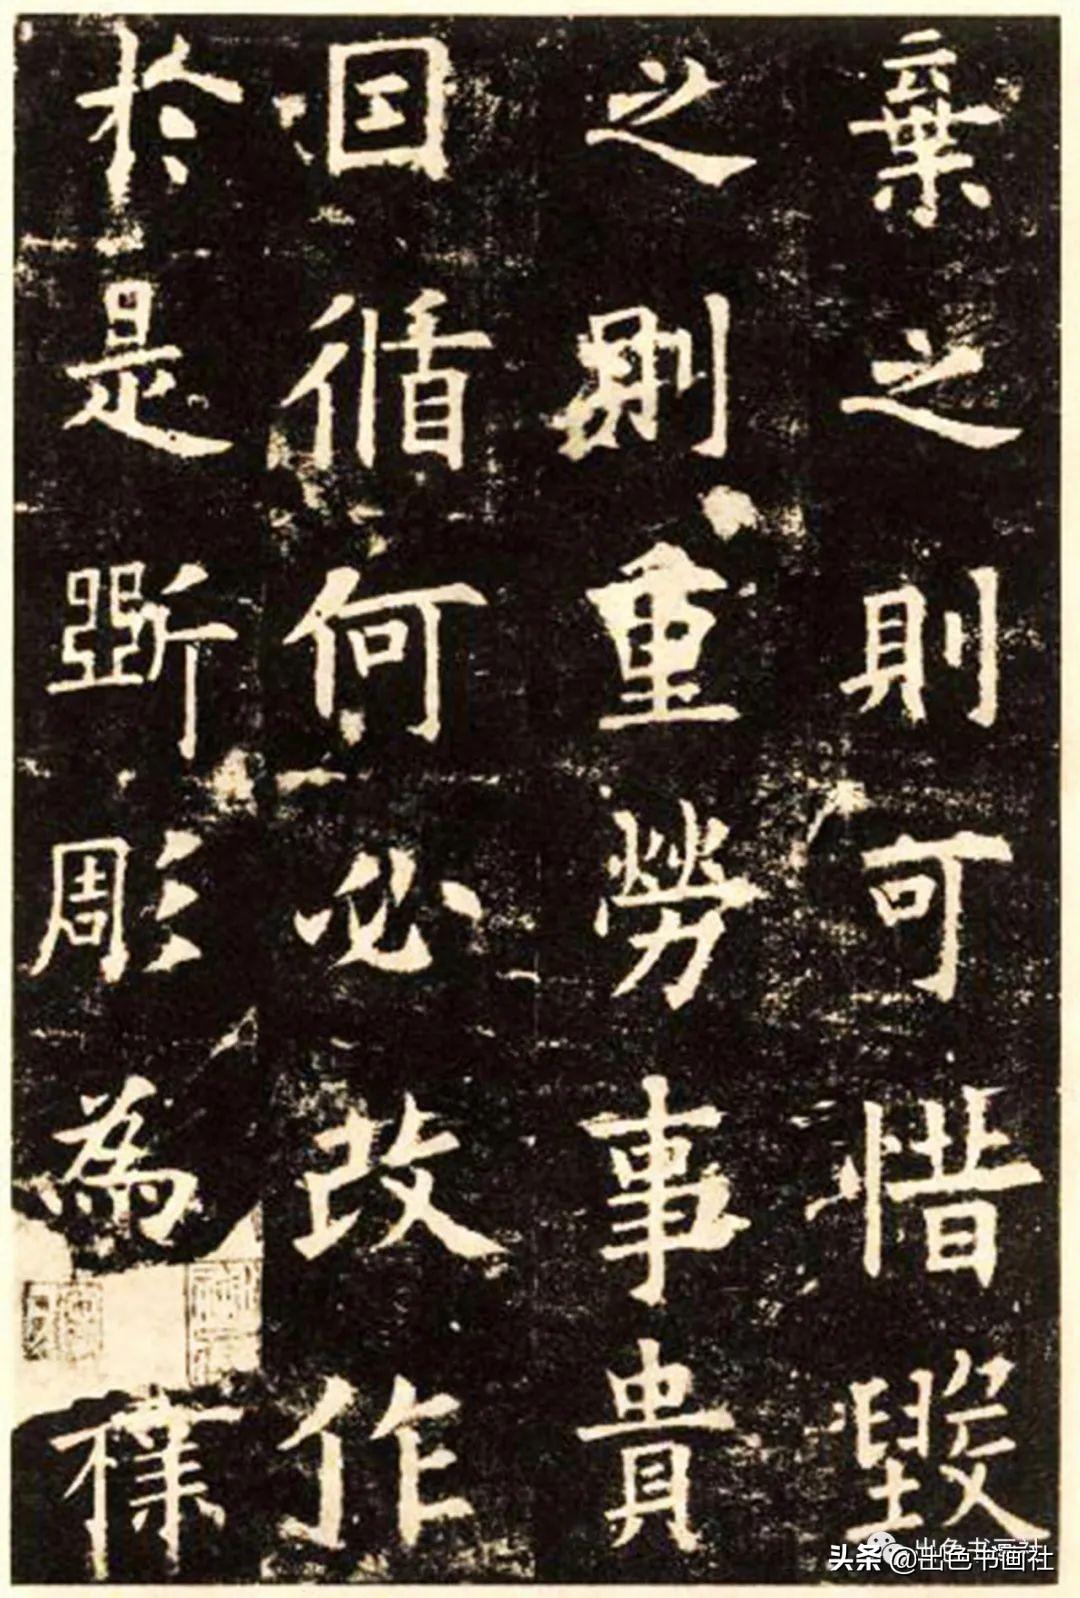 棄之則可惜毀
之則重勞事貴
因循何必改作
於是斲彫為樸
头条 @出色书画社
出色书画社